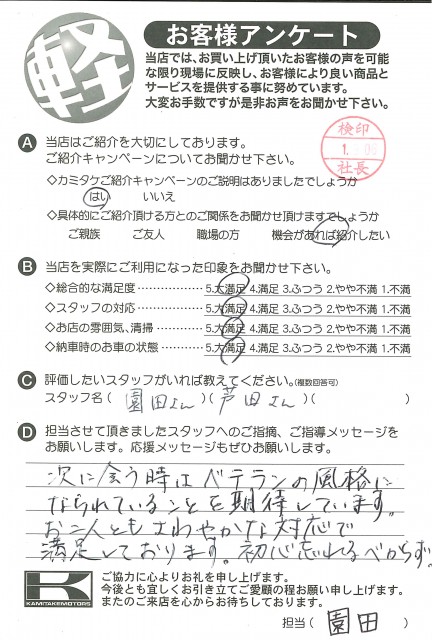 軽
お客様アンケート
当店では、お買い上げ頂いたお客様の声を可能
な限り現場に反映し、お客様により良い商品と
サービスを提供する事に努めています。
大変お手数ですが是非お声をお聞かせ下さい。
A 当店はご紹介を大切にしております。
ご紹介キャンペーンについてお聞かせ下さい。
検印
社長
◇カミタケご紹介キャンペーンのご説明はありましたでしょうか
はい いいえ
◇具体的にご紹介頂ける方とのご関係をお聞かせ頂けますでしょうか
ご親族 ご友人 職場の方 機会があれば紹介したい
B 当店を実際にご利用になった印象をお聞かせ下さい。
◇総合的な満足度……………5.大満足 4.満足 3.ふつう 2.やや不満 1.不満
◇スタッフの対応……………5.大満足 4.満足 3.ふつう 2.やや不満 1.不満
◇お店の雰囲気、清掃………5.大満足 4.満足 3.ふつう 2.やや不満 1.不満
◇納車時のお車の状態………5.大満足 4.満足 3.ふつう 2.やや不満 1.不満
C 評価したいスタッフがいれば教えてください。(複数回答可)
スタッフ名(園田さん)(芦田さん)( )
D 担当させて頂きましたスタッフへのご指摘、ご指導メッセージを
お願いします。応援メッセージもぜひお願いします。
次に会う時はベテランの風格に
なられていることを期待しています。
お二人ともさわやかな対応で
満足しております。初心忘れるべからず。
K
KAMITAKEMOTORS
ご協力に心よりお礼を申し上げます。
今後とも宜しくお引き立てご愛顧の程お願い申し上げます。
またのご来店を心からお待ちしております。
担当(園田)